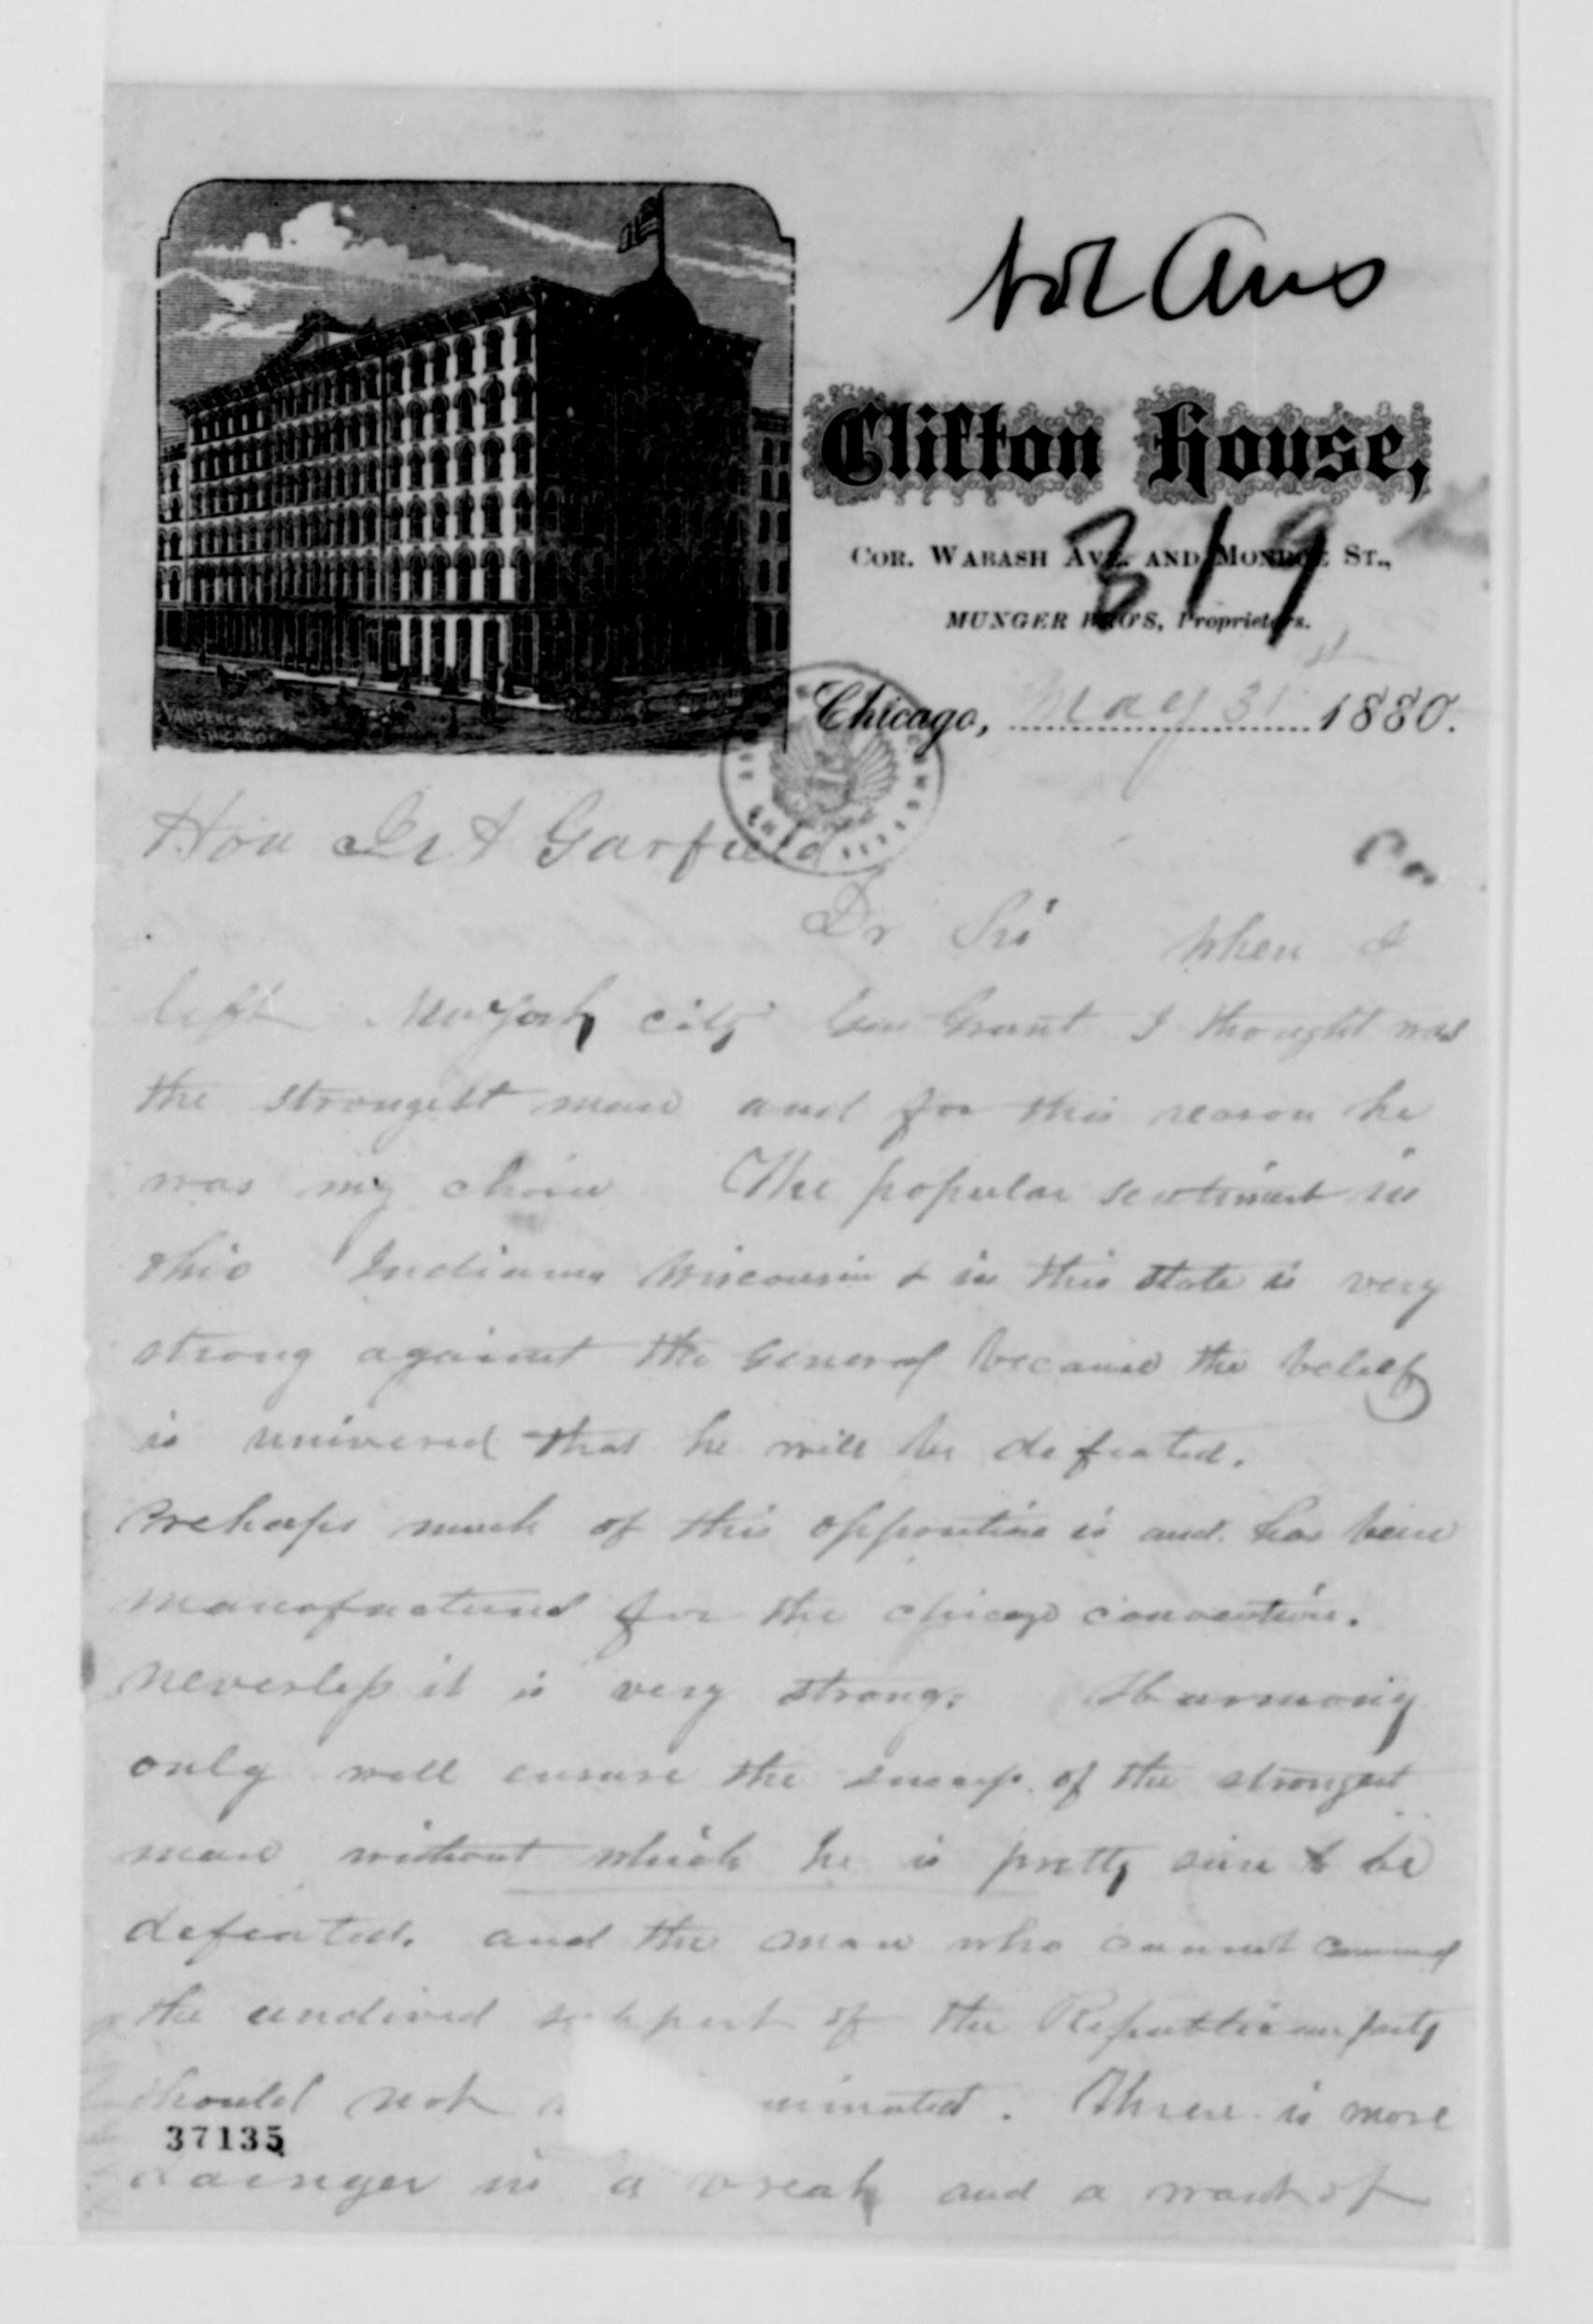 Not Ans
Clifton House,
COR. WABASH AVE. AND MONROE ST.,
319
MUNGER BRO'S, Proprietors.
Chicago, May 31st 1880.
VANDERCOOK
CHICAGO
Hon A Garfield
Dr Sir When I
left New York city Gen Grant I thought was
the strongest man and for this reason he
was my choice The popular sentiment in
Ohio Indiana Wisconsin & in this state is very
strong against the General because the belief
is univered that he will be defeated.
Prehaps much of this opposition is and has been
manufactured for the chicago convention.
neverless it is very strong. Harmony
only will ensure the success of the strongest
man without which he is pretty sure to be
defeated. and the man who cannot command
the undived support of the Republican party
should not minated. There is more
dainger in a break and a want of
37135